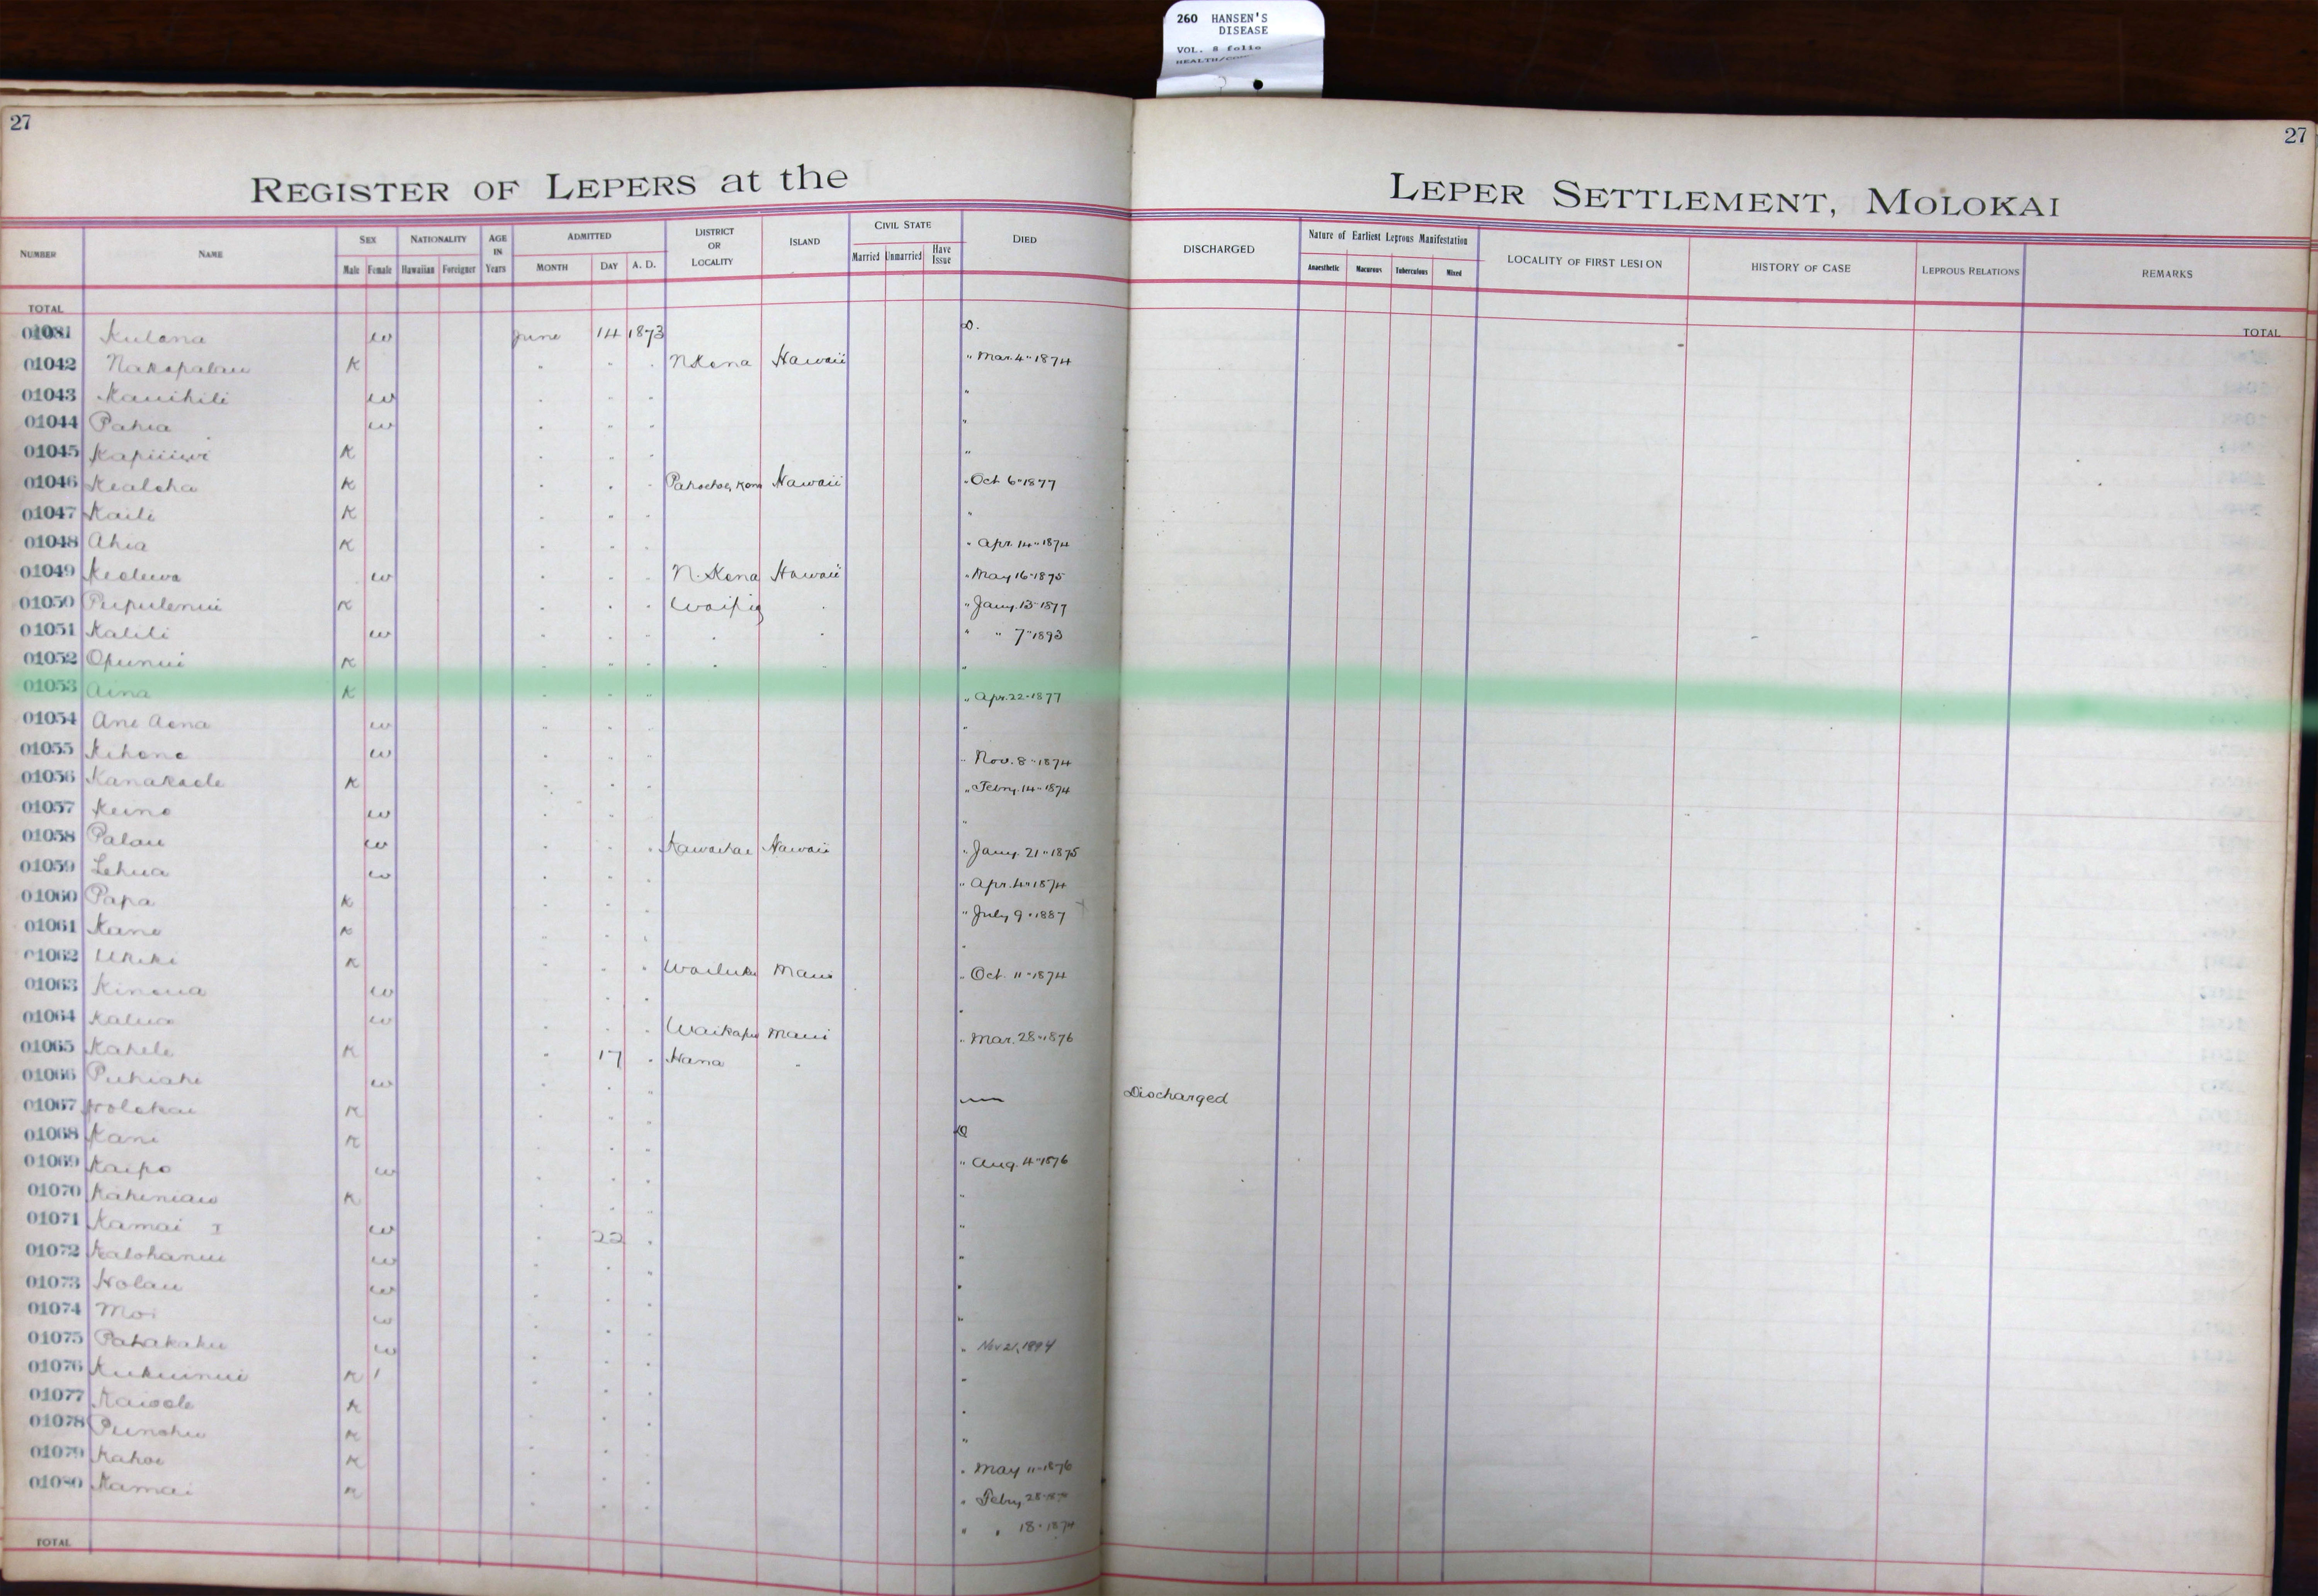 260 HANSEN'S
DISEASE
VOL. 8 folio
27
27
REGISTER OF LEPERS at the LEPER SETTLEMENT, MOLOKAI
NUMBER NAME SEX Male Female NATIONALITY Hawaiian Foreigner AGE IN Years ADMITTED MONTH DAY A. D. DISTRICT OR LOCALITY ISLAND CIVIL STATE Married Unmarried Have Issue DIED DISCHARGED Nature of Earliest Leprous Manifestation Anaesthetic Macurous Tuberculous Mixed LOCALITY OF FIRST LESION HISTORY OF CASE LEPROUS RELATIONS REMARKS
TOTAL TOTAL
Kulana w June 14 1873 D.
01042 Nakopalau K " " " N Kona Hawaii " Mar. 4" 1874
01043 Kauihili w " " " "
01044 Pahia w " " " "
01045 K " " " "
01046 Kealoha K " " " Hawaii " Oct 6" 1877
01047 Kaili K " " " "
01048 Ahia K " " " " Apr. 14" 1874
01049 Keoluwa w " " " N. Kona Hawaii " May 16" 1875
01050 Pupulenui K " " " Waipio " " Jany. 13" 1877
01051 Kalili w " " " " " " " 7" 1893
01052 Opunui K " " " " " "
01053 Aina K " " " " Apr. 22" 1877
01054 Ane Aona w " " " "
01055 Kihone w " " " " Nov. 8" 1874
01056 Kanakaole K " " " " Febry. 14" 1874
01057 Keino w " " " "
01058 Palau w " " " Kawaihae Hawaii " Jany. 21" 1875
01059 Lehua w " " " " Apr. 4" 1874
01060 Papa K " " " " July 9" 1887
01061 Kane K " " " "
01062 Ukeke K " " " Wailuku Maui " Oct. 11" 1874
01063 Kinoua w " " "
01064 Kalua w " " " Waikapu Maui " Mar. 28" 1876
01065 Kahele K " 17 " Hana "
01066 Puhiahi w " " " Discharged
01067 Holokai K " " " D
01068 Kani K " " " " Aug. 4" 1876
01069 Kaipo w " " " "
01070 Kahiniau K " " " "
01071 Kamai I w " 22 " "
01072 Kalohanui w " " " "
01073 Holau w " " " "
01074 Moi w " " " " Nov 21, 1894
01075 Pahakaku w " " " "
01076 Kukuinui K " " " "
01077 Kaiaole K " " " "
01078 Punohu K " " " " May 11" 1876
01079 Kahoe K " " " " Febry 28"
01080 Kamai K " " " " " 18" 1874
TOTAL